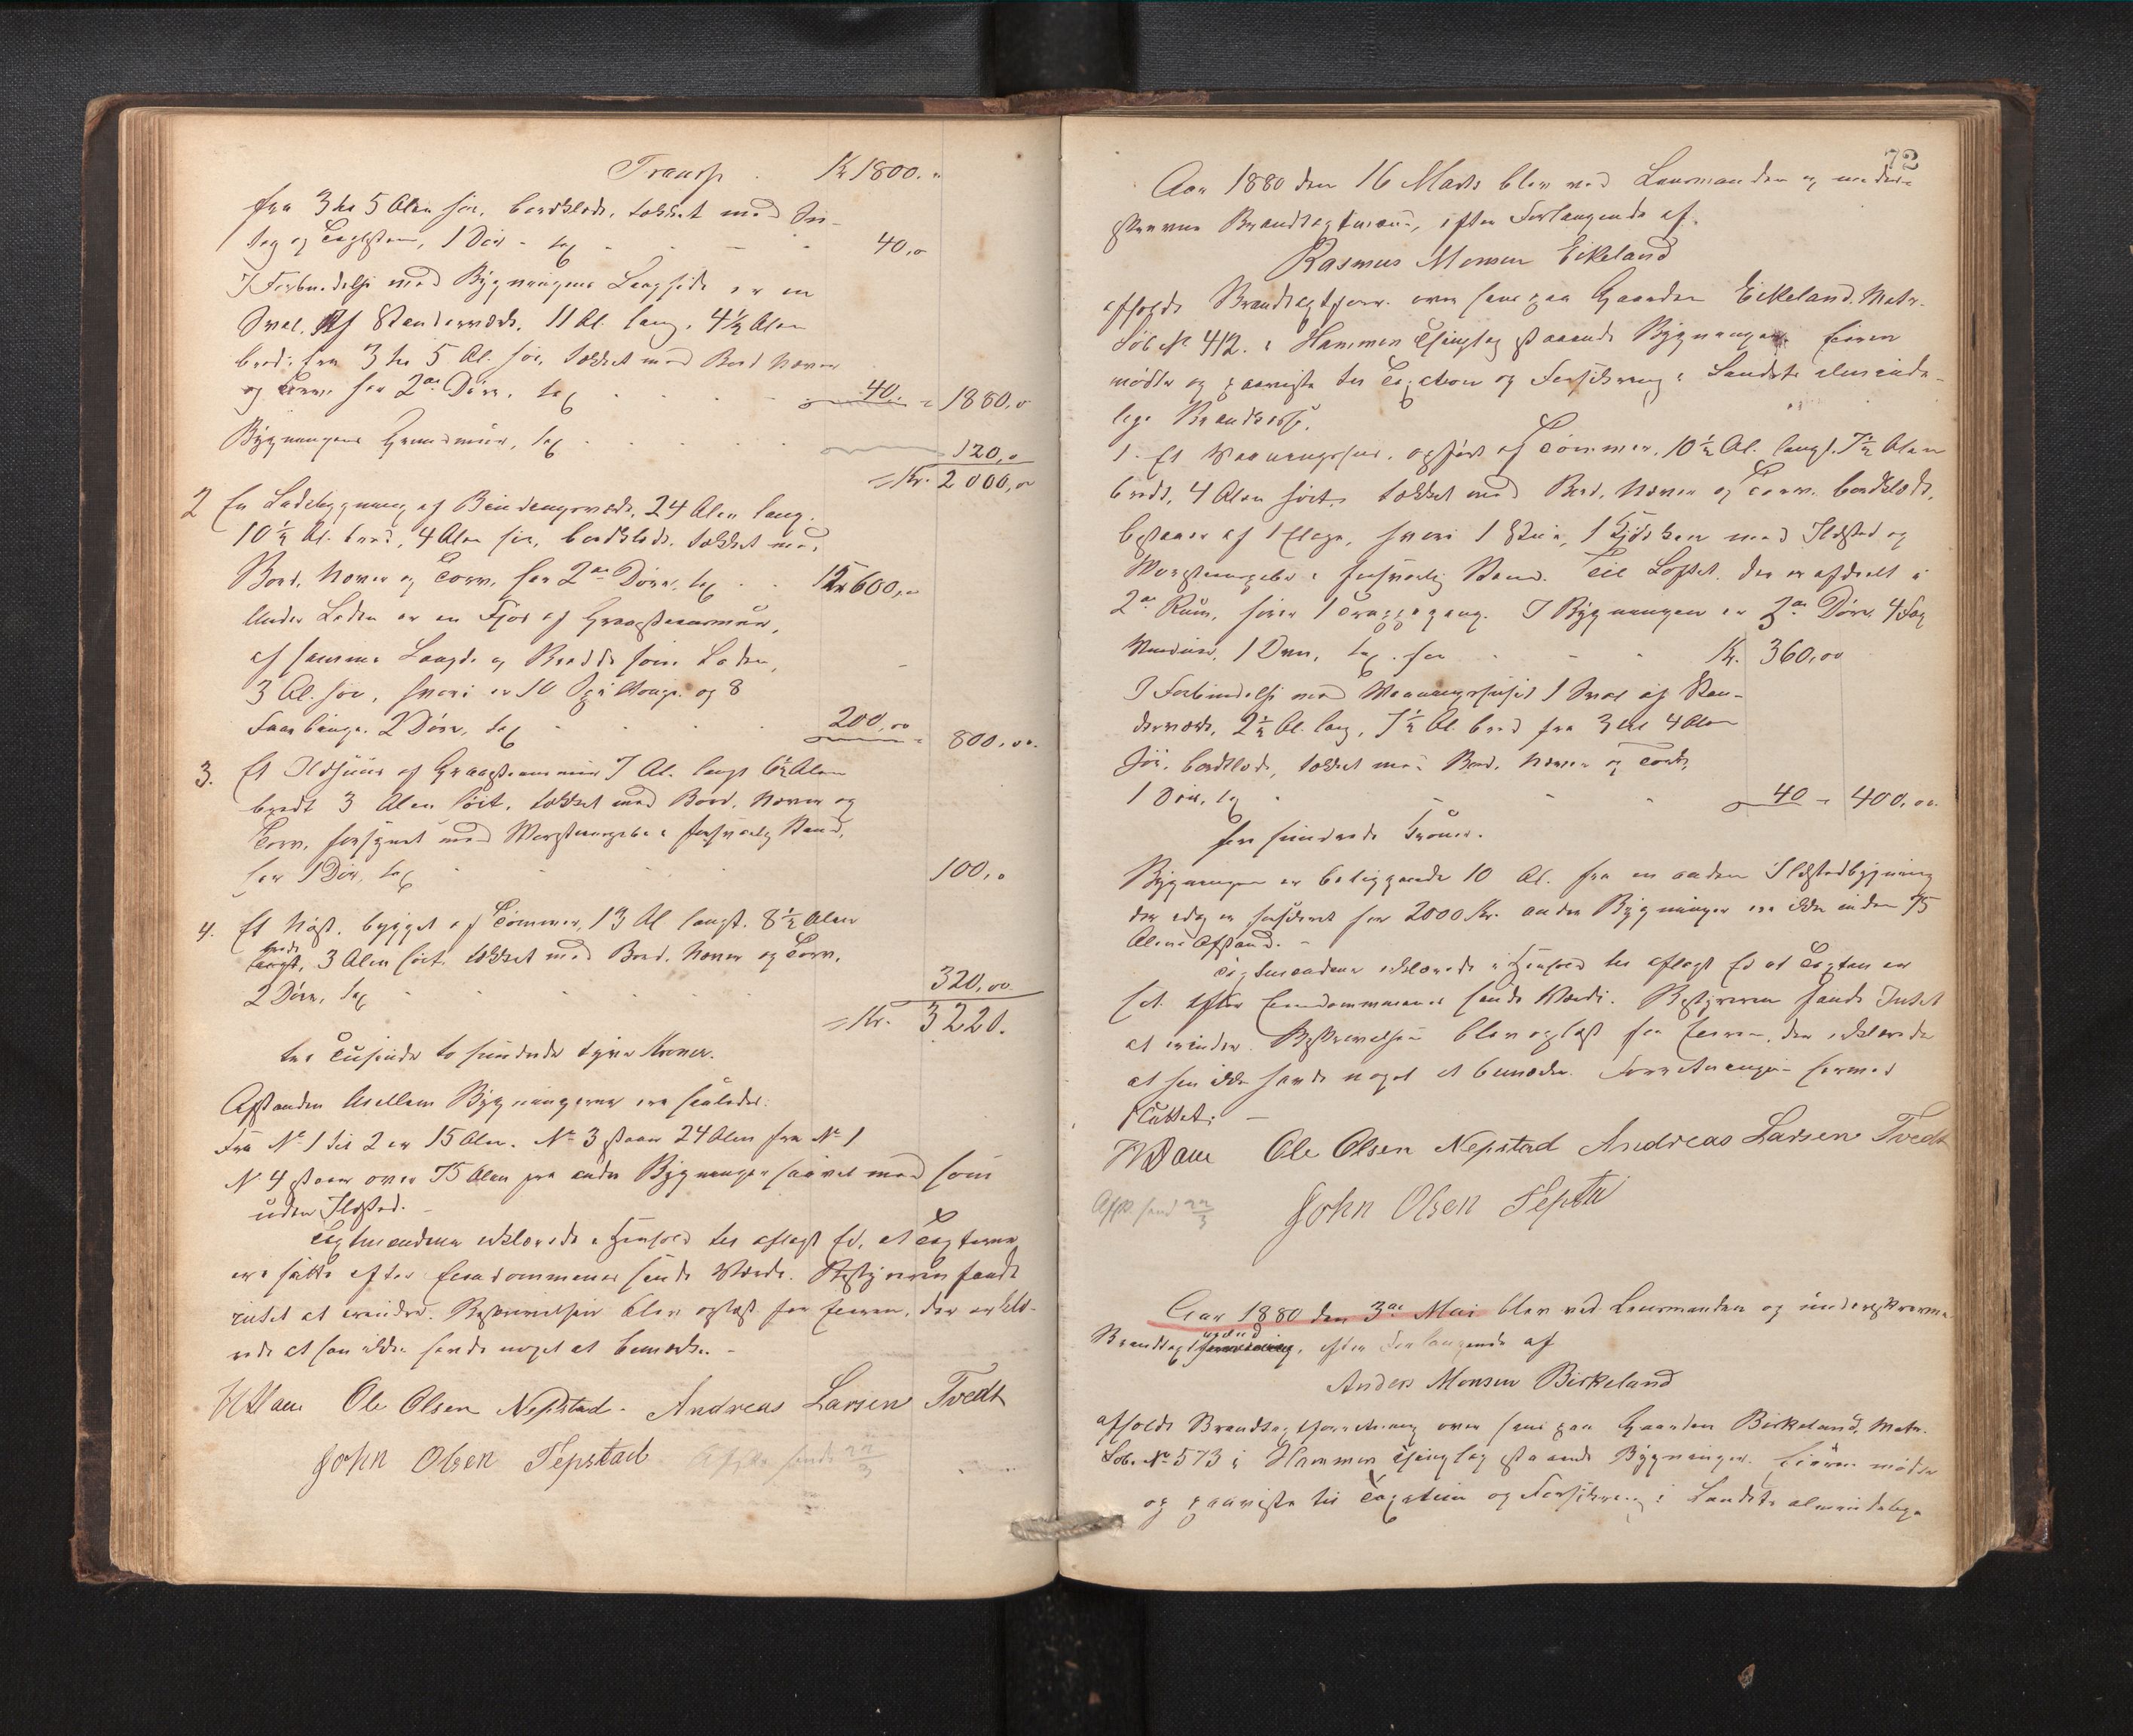 Transp. Kr 1800. "
fra 3 til 5 Alen høi, bordklædt, tækket med Su-
tag og Taglsten, 1 Dør - tax 40,00
I Forbindelse med Bygningens Langside er en
Sval, af Standerværk, 11 Al. lang, 4½ Alen
bred, fra 3 til 5 Al. høi, tækket med Bord Næver
og Torv. har 2de Døre, tax 40. = 1880,00
Bygningens Grundmuur, tax 120,00
= Kr. 2000,00
2 En Ladebygning af Bindingsværk, 24 Alen lang,
10½ Al. bred, 4 Alen høi, bordklædt, tækket med
Bord, Næver og Torv, har 2de Døre, tax Kr 600,00
Under Laden er en Fjøs af Graastensmuur,
af samme Længde og Bredde som Laden,
3 Al. høi, hvori er 10 og 8
Saubinge. 2 Døre, tax 200,00 = 800,00.
3. Et Ildhuus af Graastensmuur 7 Al. langt 6½ Alen
bredt 3 Alen høit, tækket med Bord, Næver og
Torv, forsynet med Murstenspibe i forsvarlig Stand,
har 1 Dør, tax 100,00
4. Et Nøst, bygget af Tømmer, 13 Al langt, 8½ Alen
bredt
langt, 3 Alen høit, tækket med Bord, Næver og Torv,
2 Døre, tax 320,00
= Kr. 3220.
tre Tusinde to hundrede tyve Kroner.
Afstanden mellem Bygningerne er saaledes:
Fra No 1 til 2 er 15 Alen. No 3 staar 24 Alen fra No 1
No 4 staar over 75 Alen fra andre Bygninger saavel med som
uden Ildsted.
Taxtmændene erklærede i Henhold til aflagt Ed, at Taxterne
ere satte efter Eiendommenes sande Værdi. Bestyreren fandt
intet at erindre. Beskrivelsen blev oplæst for Eieren, der erklæ-
rede at han ikke havde noget at bemærke. -
Ole Olsen Nepstad - Andreas Larsen Tvedt
John Olsen Tepstad Afskr. sendt 22/3
72
Aar 1880 den 16 Marts blev ved Lensmanden og under-
skrevne Brandtaxtmænd, efter Forlangende af
Rasmus Monsen Eikeland
afholdt Brandtaxtforr. over hans paa Gaarden Eikeland, Matr.
Løb No 412. i Hammer Thinglag staaende Bygninger. Eieren
mødte og paaviste til Taxation og Forsikring i Landets alminde-
lige Brandkasse.
1. Et Vaaningshus, opført af Tømmer, 10½ Al. langt, 7½ Alen
bredt, 4 Alen høit, tækket med Bord, Næver og Torv. bordklædt,
bestaar af 1 Etage, hvori 1 Stue, 1 Kjøkken med Ildsted og
Murstenspibe i forsvarlig Stand. Til Loftet, der er afdeelt i
2de Rum, fører 1 Trappegang. I Bygningen er 3de Døre, 4 Fag
Vinduer, 1 Ovn, tax. for Kr. 360,00
I Forbindelse med Vaaningshuset 1 Sval af Stan-
derværk, 2½ Al. lang, 7½ Al. bred fra 3 til 4 Alen
høi, bordklædt, tækket med Bord, Næver og Torv,
1 Dør, tax 40 = 400,00.
fire hundrede Kroner.
Bygningen er beliggende 10 Al. fra en anden Ildstedbygning
der idag er forsikret for 2000 Kr. andre Bygninger ere ikke inden 75
Alens Afstand. -
Taxtmændene erklærede i Henhold til aflagt Ed at Taxten er
sat efter Eiendommenes sande Værdi. Bestyreren fandt Intet
at erindre. Beskrivelsen blev oplæst for Eieren, der erklærede
at han ikke havde noget at bemærke. Forretningen hermed
sluttet. -
Ole Olsen Nepstad Andreas Larsen Tvedt
Afskr. sendt 22/3 John Olsen Tepsta
Aar 1880 den 3de Mai blev ved Lensmanden og underskrevne
mænd
Brandtaxtforretning, efter Forlangende af
Anders Monsen Birkeland
afholdt Brandtaxtforretning over hans paa Gaarden Birkeland, Matr.
Løb. No 573 i Hammer Thinglag staaende Bygninger. Eieren mødte
og paaviste til Taxation og Forsikring i Landets almindelige